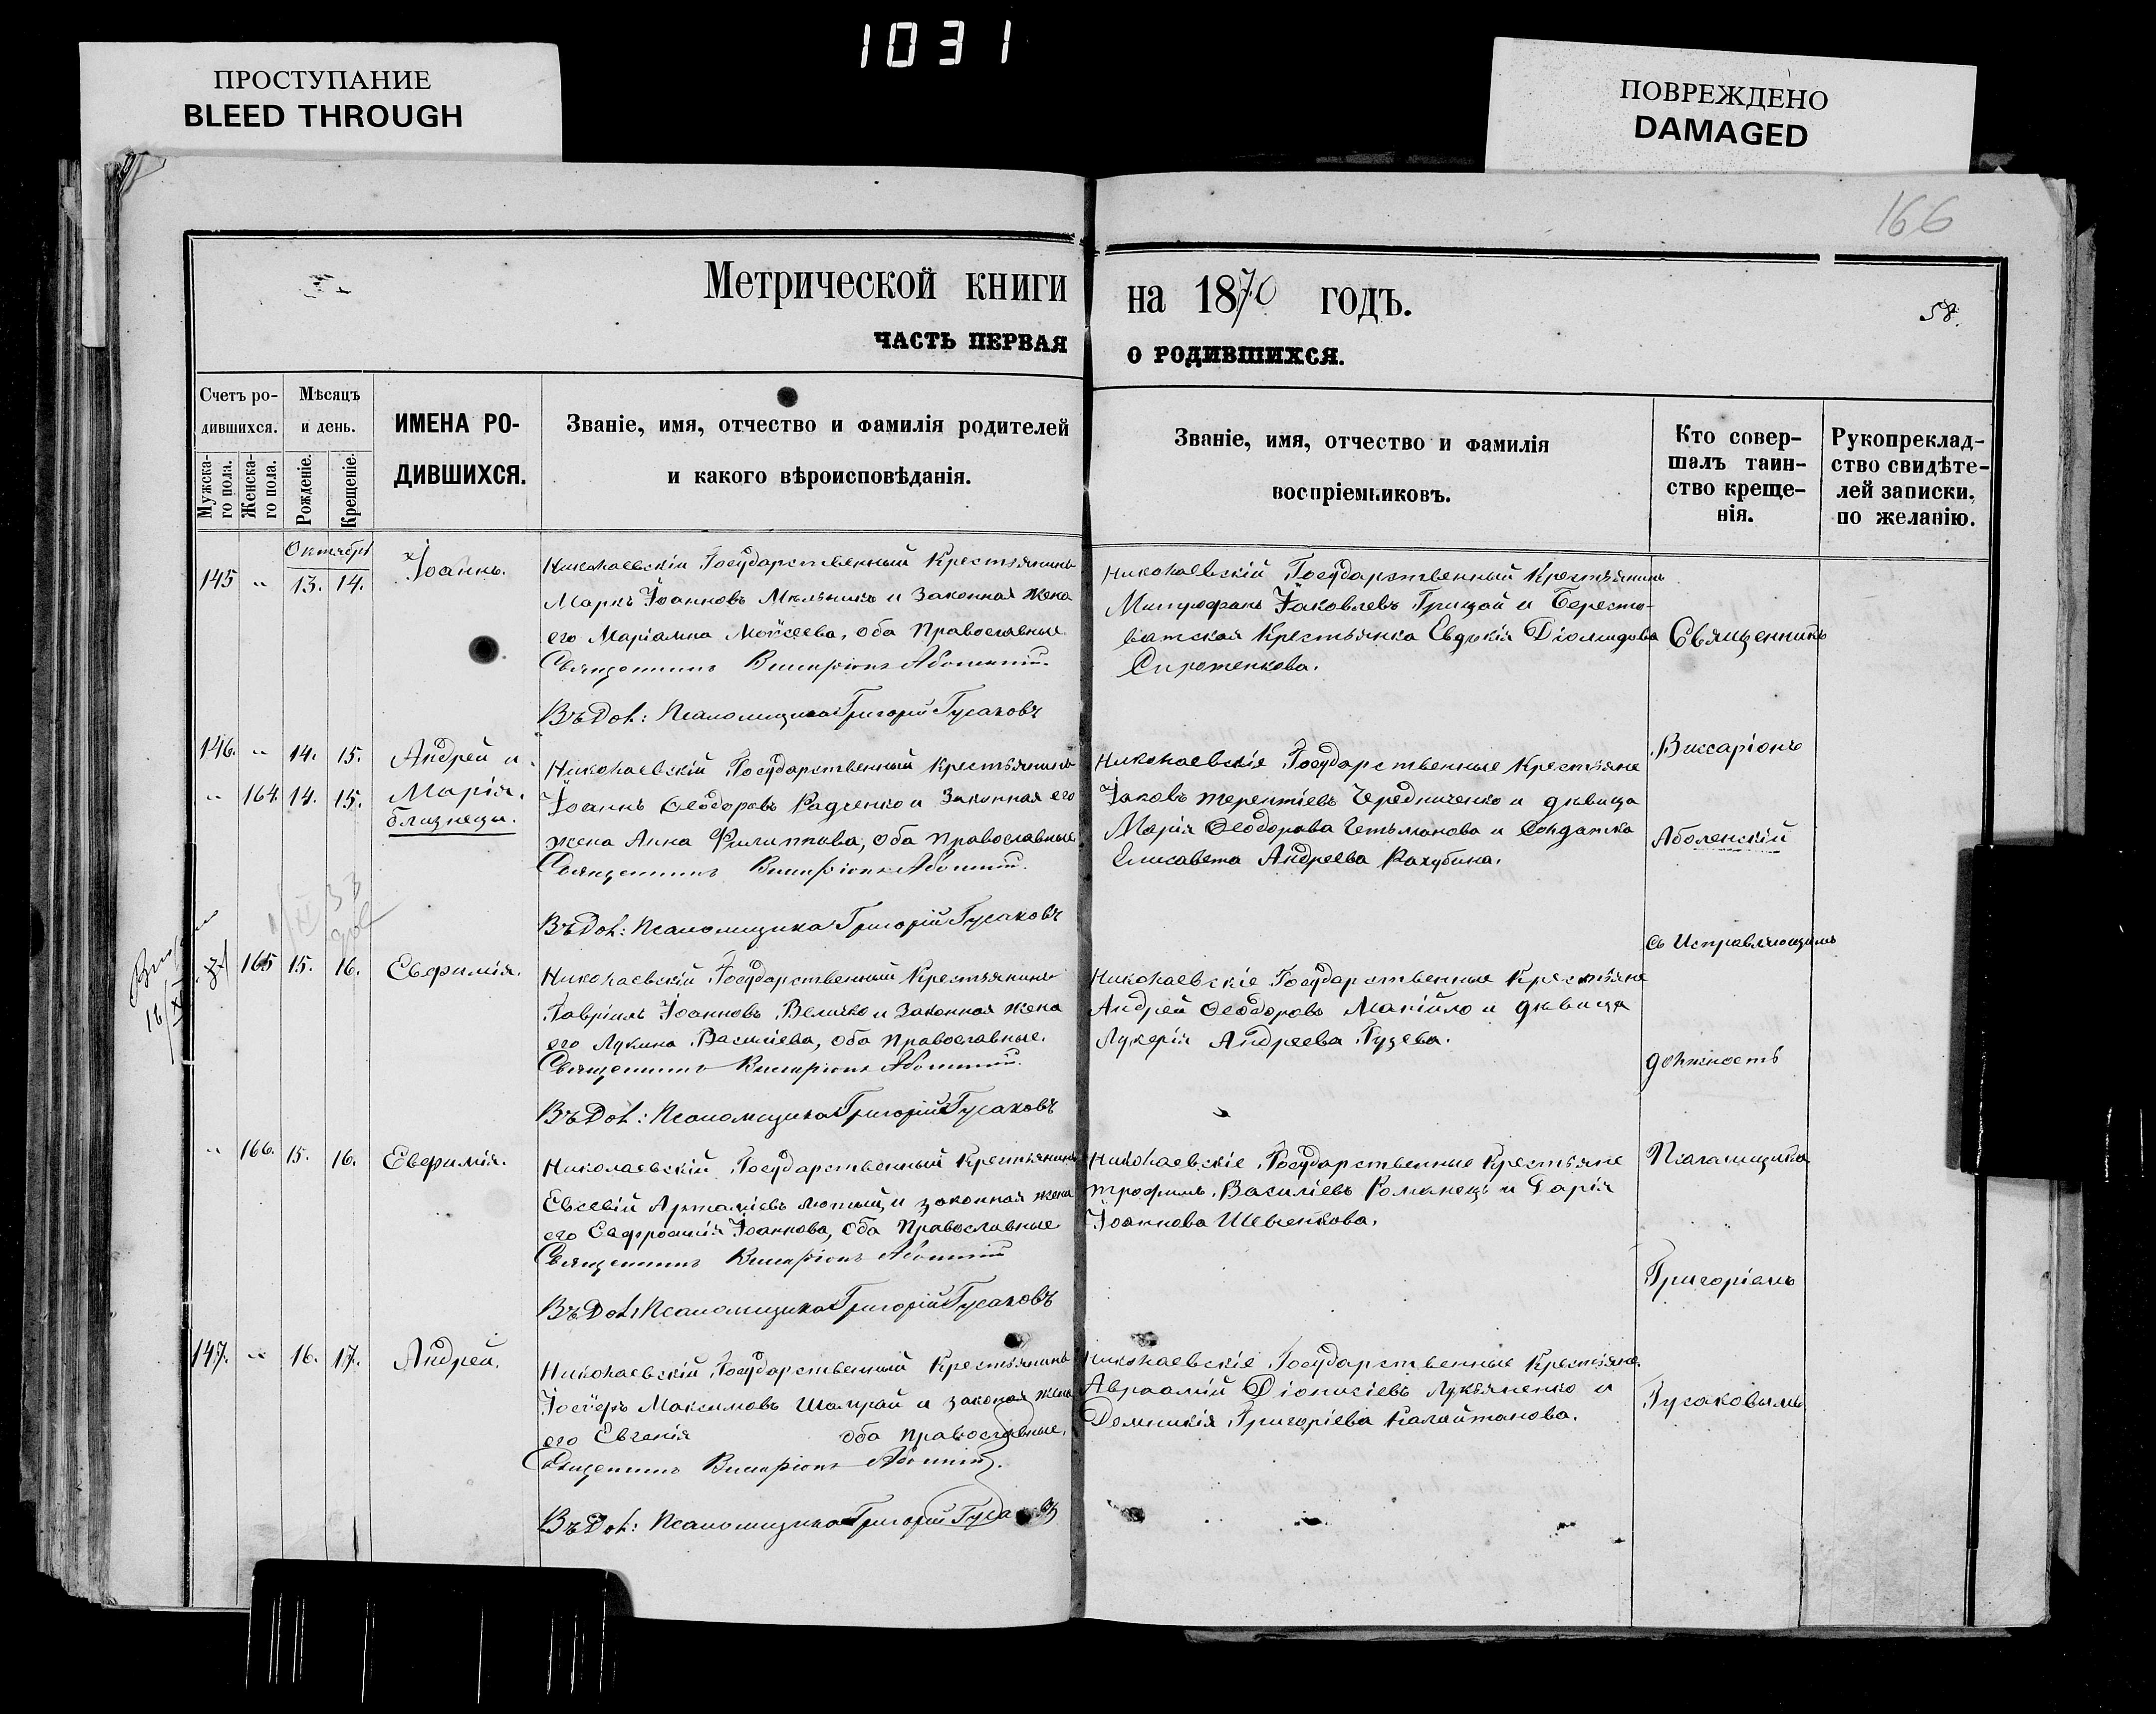 1031
ПРОСТУПАНИЕ
BLEED THROUGH
ПОВРЕЖДЕНО
DAMAGED
166
Метрической книги на 1870 годъ.
58.
ЧАСТЬ ПЕРВАЯ О РОДИВШИХСЯ.
Счетъ ро-
дившихся.
Мужска-
го пола.
Женска-
го пола.
Мѣсяцъ
и день.
Рожденіе.
Крещеніе.
ИМЕНА РО-
ДИВШИХСЯ.
Званіе, имя, отчество и фамилія родителей
и какого вѣроисповѣданія.
Званіе, имя, отчество и фамилія
воспріемниковъ.
Кто совер-
шалъ таин-
ство креще-
нія.
Рукоприклад-
ство свидѣте-
лей записки,
по желанію.
Октябрь
145 „ 13. 14.
Іоаннъ.
Николаевскій Государственный Крестьянинъ
Маркъ Іоанновъ Мельникъ и Законная жена
его Маріамна Моѵсеева, оба Православные.
Священникъ Виссаріонъ
Въ Дол: Псаломщика Григорій Гусаковъ
Николаевскій Государственный Крестьянинъ
Митрофанъ Іаковлевъ Грицай и Бересто-
ватская Крестьянка Евдокія Діомидова
Сироженкова.
146. „ 14. 15.
„ 164. 14. 15.
Андрей и
Марія.
близнецы.
Николаевскій Государственный Крестьянинъ
Іоаннъ Ѳеодоровъ Радченко и Законная его
жена Анна Филиппова, оба Православные.
Священникъ Виссаріонъ
Въ Дол: Псаломщика Григорій Гусаковъ
Николаевскіе Государственные Крестьяне
Іаковъ Терентіевъ Чередниченко и дѣвица
Марія Ѳеодорова Гетьманова и Солдатка
Елисавета Андреева Кахубина.
165 15. 16.
Евфимія.
Николаевскій Государственный Крестьянинъ
Гавріилъ Іоанновъ Величко и Законная жена
его Лукина Васильева, оба Православные.
Священникъ Виссаріонъ
Въ Дол: Псаломщика Григорій Гусаковъ
Николаевскіе Государственные Крестьяне
Андрей Ѳеодоровъ Манійло и дѣвица
Лукерія Андреева Гузева.
„ 166. 15. 16.
Евфимія.
Николаевскій Государственный Крестьянинъ
Евсевій Артаміевъ Лютый, и законная жена
его Евфросинія Іоаннова, оба Православные.
Священникъ Виссаріонъ
Въ Дол: Псаломщика Григорій Гусаковъ
Николаевскіе Государственные Крестьяне
Трофимъ Василіевъ Романецъ и Дарія
Іоаннова Шевченкова.
147. „ 16. 17.
Андрей.
Николаевскій Государственный Крестьянинъ
Іосифъ Максимовъ Шапрай и законая жена
его Евгенія оба православные.
Священникъ Виссаріонъ
Въ Дол: Псаломщика Григорій
Николаевскіе Государственные Крестьяне
Авраамій Діонисіевъ Лукьяненко и
Домникія Григоріева Калайтанова.
Священникъ
Виссаріонъ
Аболенскій
съ Исправляющимъ
должность
Псаломщика
Григоріемъ
Гусаковымъ